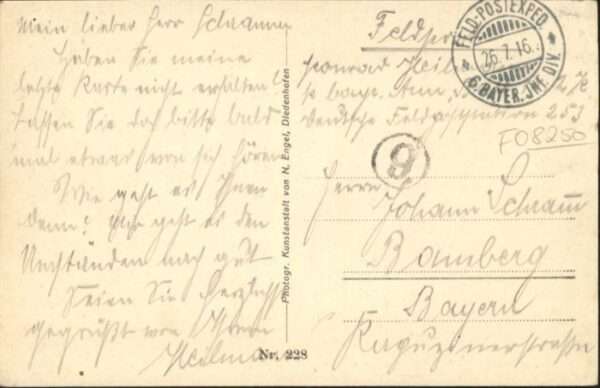 Mein lieber Herr Schramm
Haben Sie meine
letzte Karte nicht erhalten?
Lassen Sie doch bitte bald
mal etwas von sich hören
Wie geht es Ihnen
denn? Mir geht es den
Umständen nach gut
Seien Sie herzlichst
gegrüßt von Ihrem
Heilmann
Photogr. Kunstanstalt von N. Engel, Diedenhofen
Nr. 228
Feldpost
FELD-POSTEXPED.
26.7.16.
* 6.BAYER.INF.DIV. *
Konrad
6. bayr.
Deutsche Feldpoststation 253
F08250
9
Herrn
Johann Schramm
Bamberg
Bayern
Kapuzinerstraße